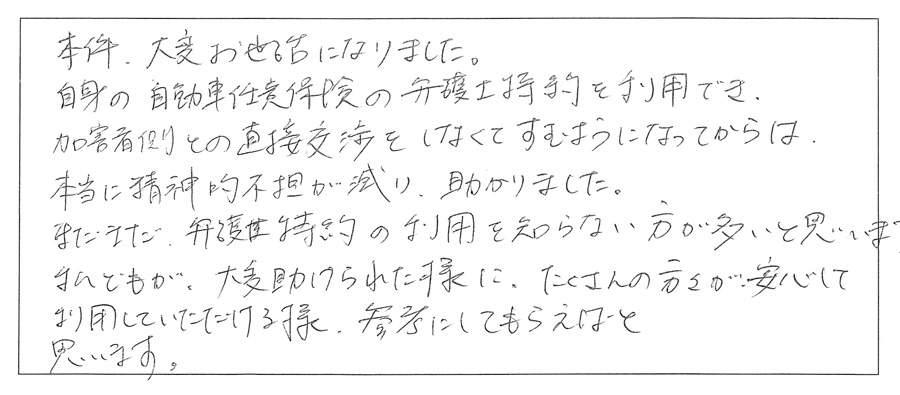 本件、大変お世話になりました。
自身の自動車任意保険の弁護士特約を利用でき、
加害者側との直接交渉をしなくてすむようになってからは、
本当に精神的不担が減り、助かりました。
まだまだ、弁護士特約の利用を知らない方が多いと思います
私どもが、大変助けられた様に、たくさんの方々が安心して
利用していただける様、参考にしてもらえばと
思います。